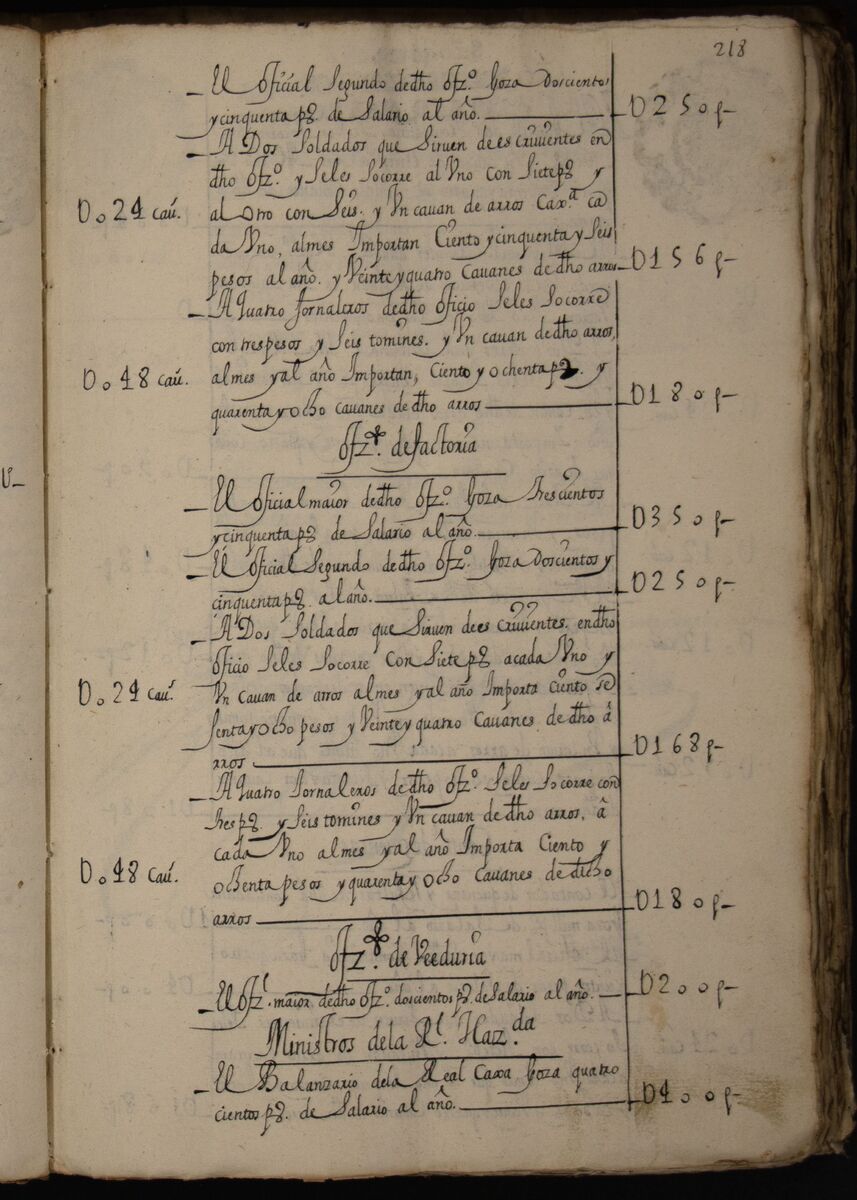 218
El Oficial Segundo dedho Ofzº. Goza Doscientos
ycinquenta pº. de Salario al año. D250p
A Dos Soldados que Siruen deescriuientes en
dho Ofzº. y Seles Socorre al Vno con Siete pº. y
Do24 cau. al Otro con Seis. y Vn cauan de arros Caxª. ca
da Vno, almes Importan Ciento ycinquenta y Seis
pesos al año. y Veinte yquatro Cauanes de dho arros D156p
A Quatro Jornaleros dedho oficio Seles Socorre
con trespesos y Seis tomines. y Vn cauan dedho arros,
Do48 cau. almes yal año Importan, Ciento y ochenta pº. y
quarenta yocho cauanes de dho arros D180p
Ofzº. defactoria
El Oficial maior dedho Ofzº. Goza Trescientos
ycinquenta pº. de Salario al año. D350p
El Oficial Segundo dedho Ofzº. Goza Doscientos y
cinquenta pº. al año. D250p
A Dos Soldados que Siruen deescriuientes. endho
oficio Seles Socorre Con Siete pº. acada Vno y
Do24 cau. Vn cauan de arros almes yal año Importa ciento se
senta yocho pesos y Veinte yquatro Cauanes de dho a
rros D168p
A Quatro Jornaleros dedho Ofzº. Seles Socorre con
tres pº. y Seis tomines y Vn cauan de dho arros, a
cada Vno almes yal año Importa Ciento y
Do48 cau. ochenta pesos y quarenta y ocho Cauanes de dicho
arros D180p
Ofzº. de Veeduria
El Ofzl. maior dedho Ofzº. doscientos pº. deSalario al año. D200p
Ministros dela Rl. Hazda
El Balanzario dela Real Caxa Goza quatro
cientos pº. de Salario al año. D400p